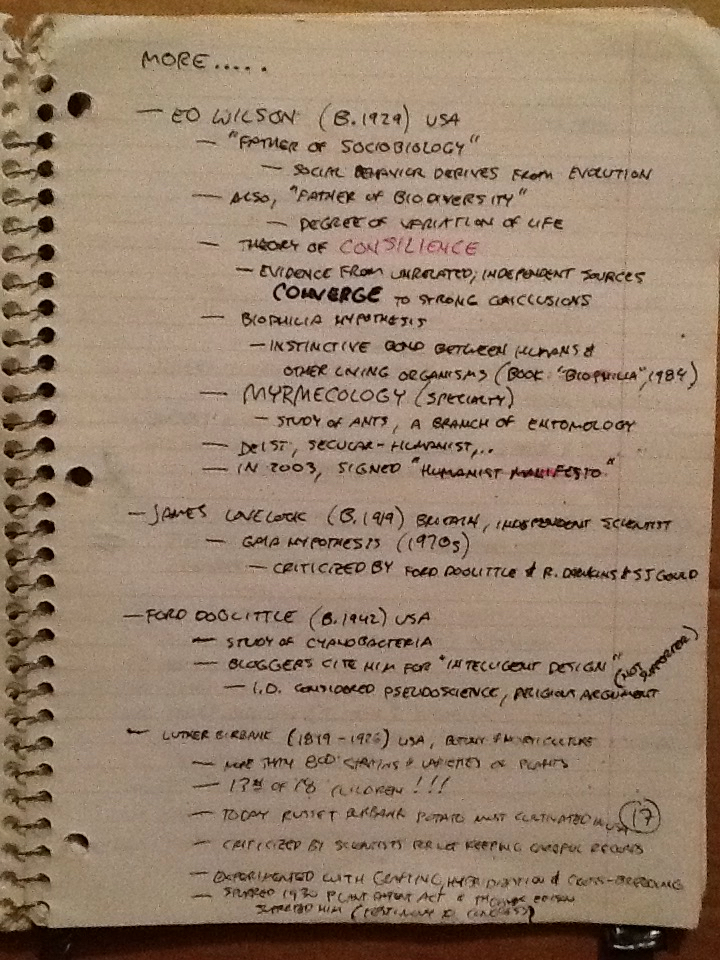 MORE.....
— ED WILSON (B. 1929) USA
— "FATHER OF SOCIOBIOLOGY"
— SOCIAL BEHAVIOR DERIVES FROM EVOLUTION
— ALSO, "FATHER OF BIODIVERSITY"
— DEGREE OF VARIATION OF LIFE
— THEORY OF CONSILIENCE
— EVIDENCE FROM UNRELATED, INDEPENDENT SOURCES
CONVERGE TO STRONG CONCLUSIONS
— BIOPHILIA HYPOTHESIS
— INSTINCTIVE BOND BETWEEN HUMANS &
OTHER LIVING ORGANISMS (BOOK: "BIOPHILIA", 1984)
— MYRMECOLOGY (SPECIALTY)
— STUDY OF ANTS, A BRANCH OF ENTOMOLOGY
— DEIST, SECULAR-HUMANIST,..
— IN 2003, SIGNED "HUMANIST MANIFESTO"
— JAMES LOVELOCK (B. 1919) BRITAIN, INDEPENDENT SCIENTIST
— GAIA HYPOTHESIS (1970s)
— CRITICIZED BY FORD DOOLITTLE & R. DAWKINS & SJ GOULD
— FORD DOOLITTLE (B. 1942) USA
— STUDY OF CYANOBACTERIA
— BLOGGERS CITE HIM FOR "INTELLIGENT DESIGN" (NOT SUPPORTER)
— I.D. CONSIDERED PSEUDOSCIENCE, RELIGIOUS ARGUMENT
— LUTHER BURBANK (1849-1926) USA, BOTANY & HORTICULTURE
— MORE THAN 800 STRAINS & VARIETIES OF PLANTS
— 13th OF 18 CHILDREN !!!
— TODAY RUSSET BURBANK POTATO MOST CULTIVATED IN USA
17
— CRITICIZED BY SCIENTISTS FOR NOT KEEPING CAREFUL RECORDS
— EXPERIMENTED WITH GRAFTING, HYBRIDIZATION & CROSS-BREEDING
— SPURRED 1930 PLANT PATENT ACT & THOMAS EDISON
SUPPORTED HIM (TESTIMONY TO CONGRESS)